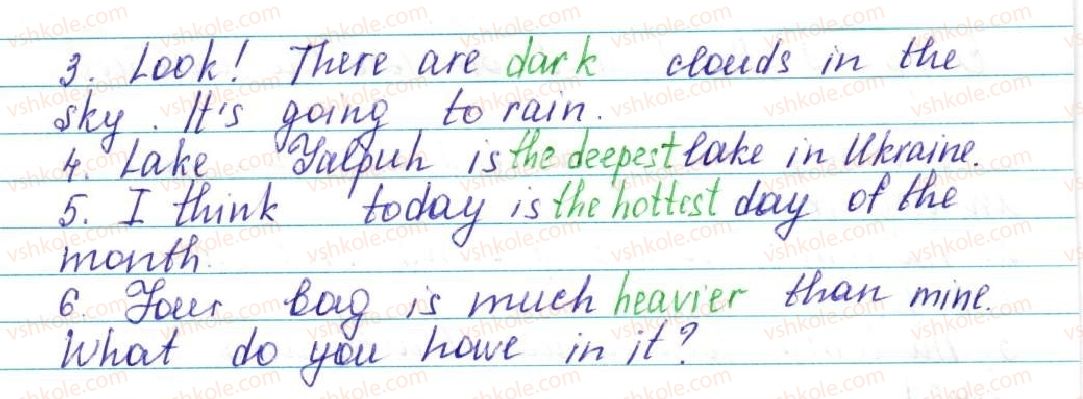 3. Look! There are dark clouds in the
sky. It's going to rain.
4. Lake Yalpuh is the deepest lake in Ukraine.
5. I think today is the hottest day of the
month.
6. Your bag is much heavier than mine.
What do you have in it?